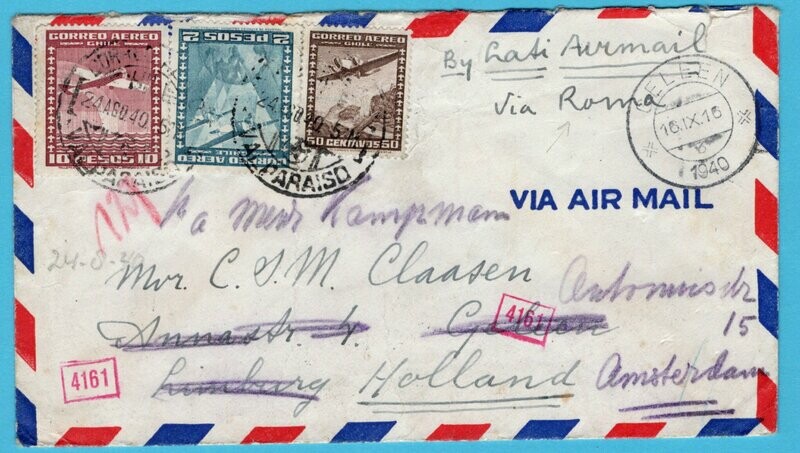 CORREO AEREO
CHILE
10 PESOS 10
2 PESOS 2
CORREO AEREO CHILE
CORREO AEREO
CHILE
50 CENTAVOS 50
24 AGO 40
VALPARAISO
24 AGO 40
VALPARAISO
By Lati Airmail
Via Roma
GELEEN
16.IX.16
1940
VIA AIR MAIL
p/a Mevr Kampmann
24-8-40
Mvr. C. J. M. Claasen
Annastr 4. Geleen
4161
Antoniusstr
15
4161
Limburg Holland Amsterdam